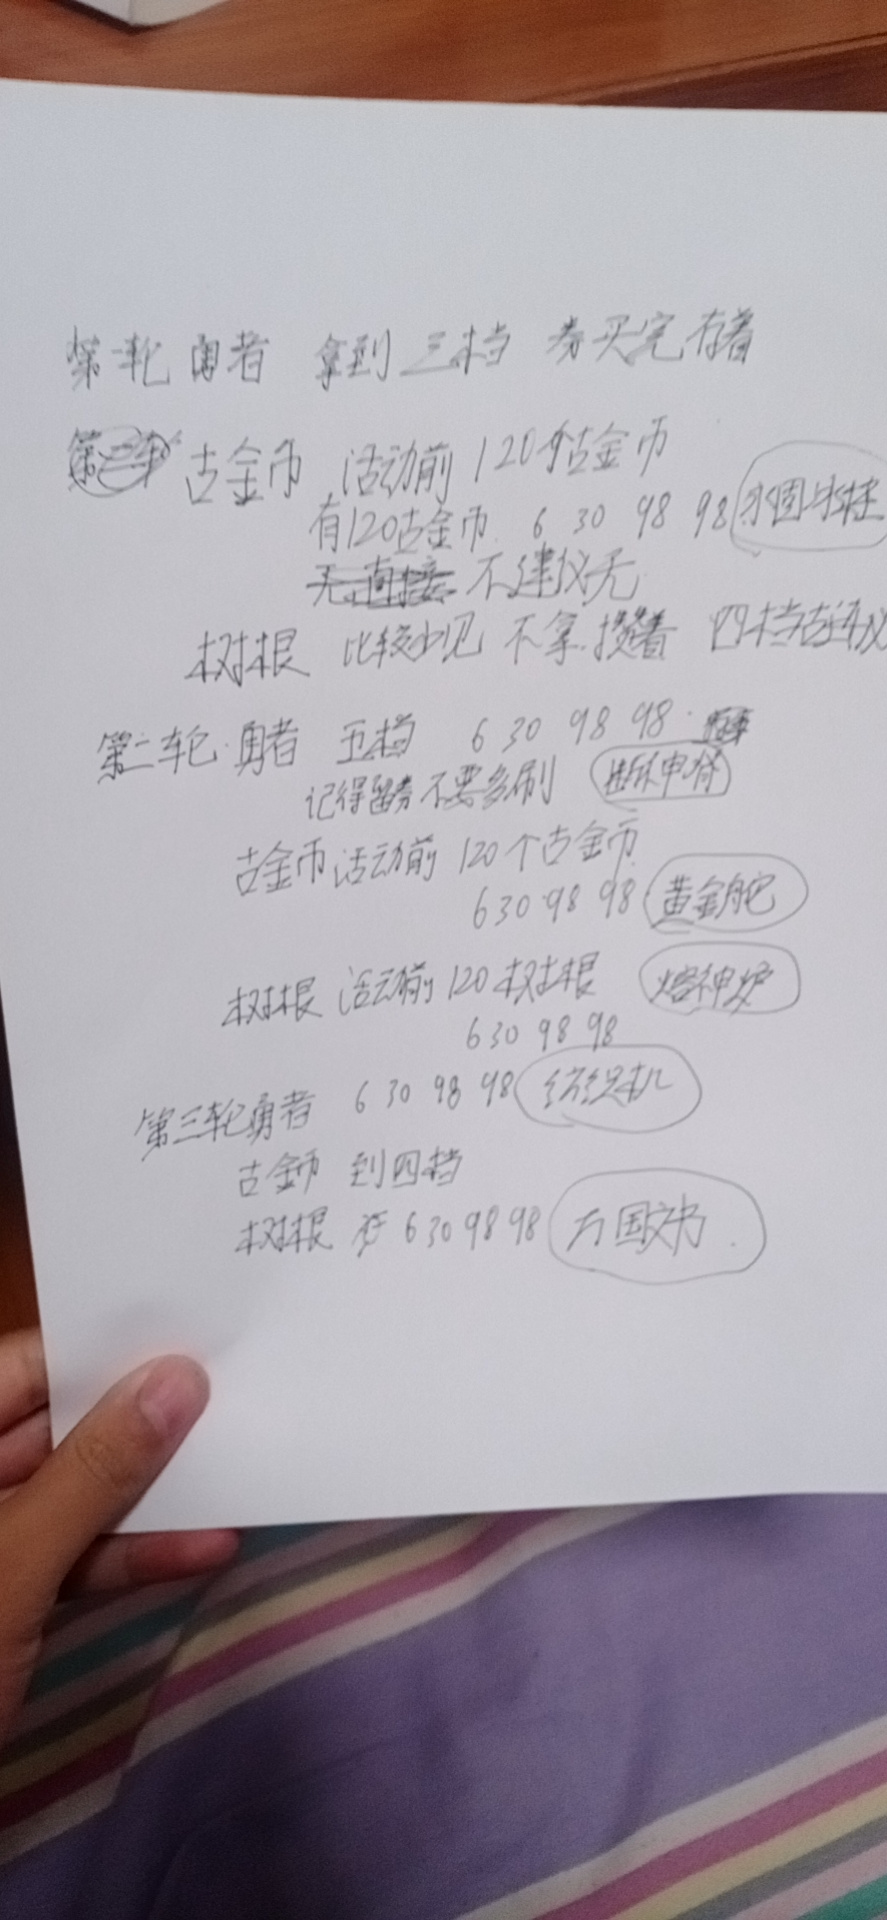 第一轮 勇者 拿到 三档 券买完存着
古金币 活动前 120个古金币
有120古金币 6 30 98 98
不建议无
树根 比较少见 不拿 攒着 四档
第二轮 勇者 五档 6 30 98 98
记得留券 不要多刷
古金币 活动前 120个古金币
6 30 98 98 黄金舵
树根 活动前 120 树根 熔神炉
6 30 98 98
第三轮勇者 6 30 98 98 纺织机
古金币 到四档
树根 6 30 98 98 万国文书